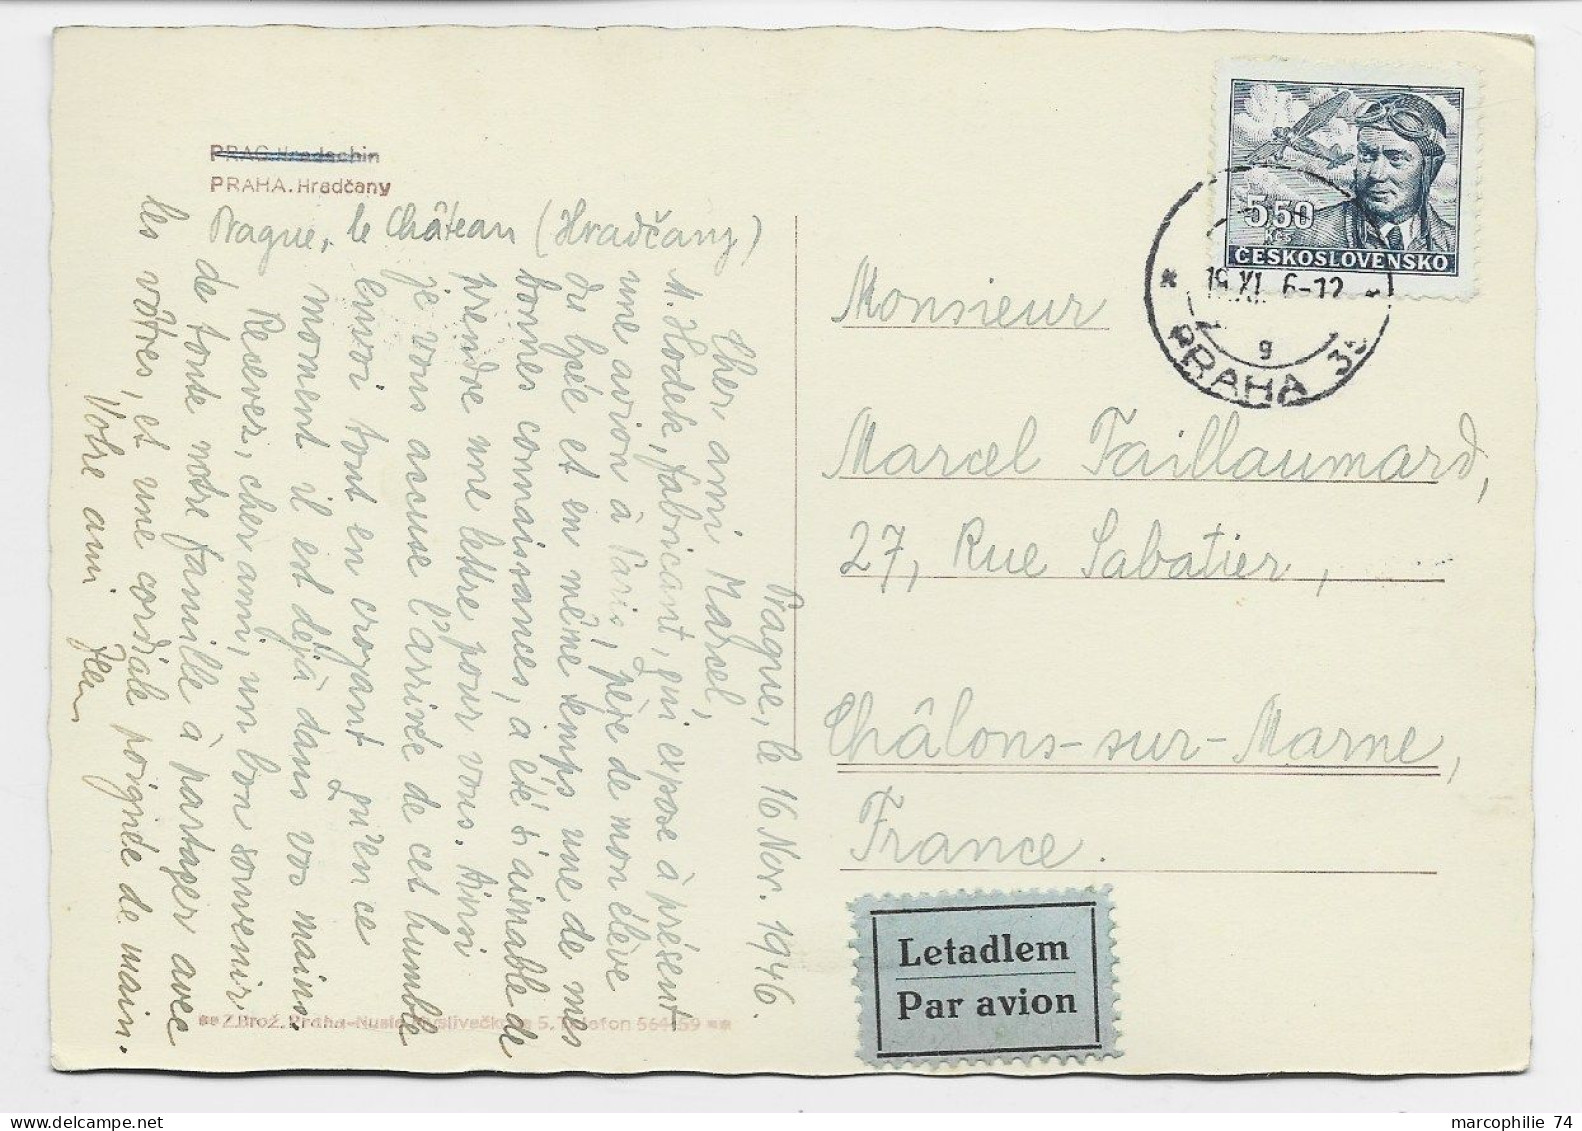 PRAG.Hradschin
PRAHA.Hradčany
Prague, le Château (Hradčany)
Prague, le 16 Nov. 1946.
Cher ami Marcel,
M. Hodek, fabricant, qui expose à présent
une avion à Paris, père de mon élève
du lycée et en même temps une de mes
bonnes connaissances, a été si aimable de
prendre une lettre pour vous. Ainsi
je vous accuse l'arrivée de cet humble
envoi tout en croyant qu'en ce
moment il est déjà dans vos mains.
Recevez, cher ami, un bon souvenir
de toute notre famille à partager avec
les vôtres, et une cordiale poignée de main.
Votre ami
Z.Brož, Praha-Nusle 5. Telefon 564-59
550
Kčs
ČESKOSLOVENSKO
19.XI. 6-12
9
PRAHA
Monsieur
Marcel Faillaumard,
27, Rue Sabatier,
Châlons-sur-Marne,
France.
Letadlem
Par avion
marcophilie 74